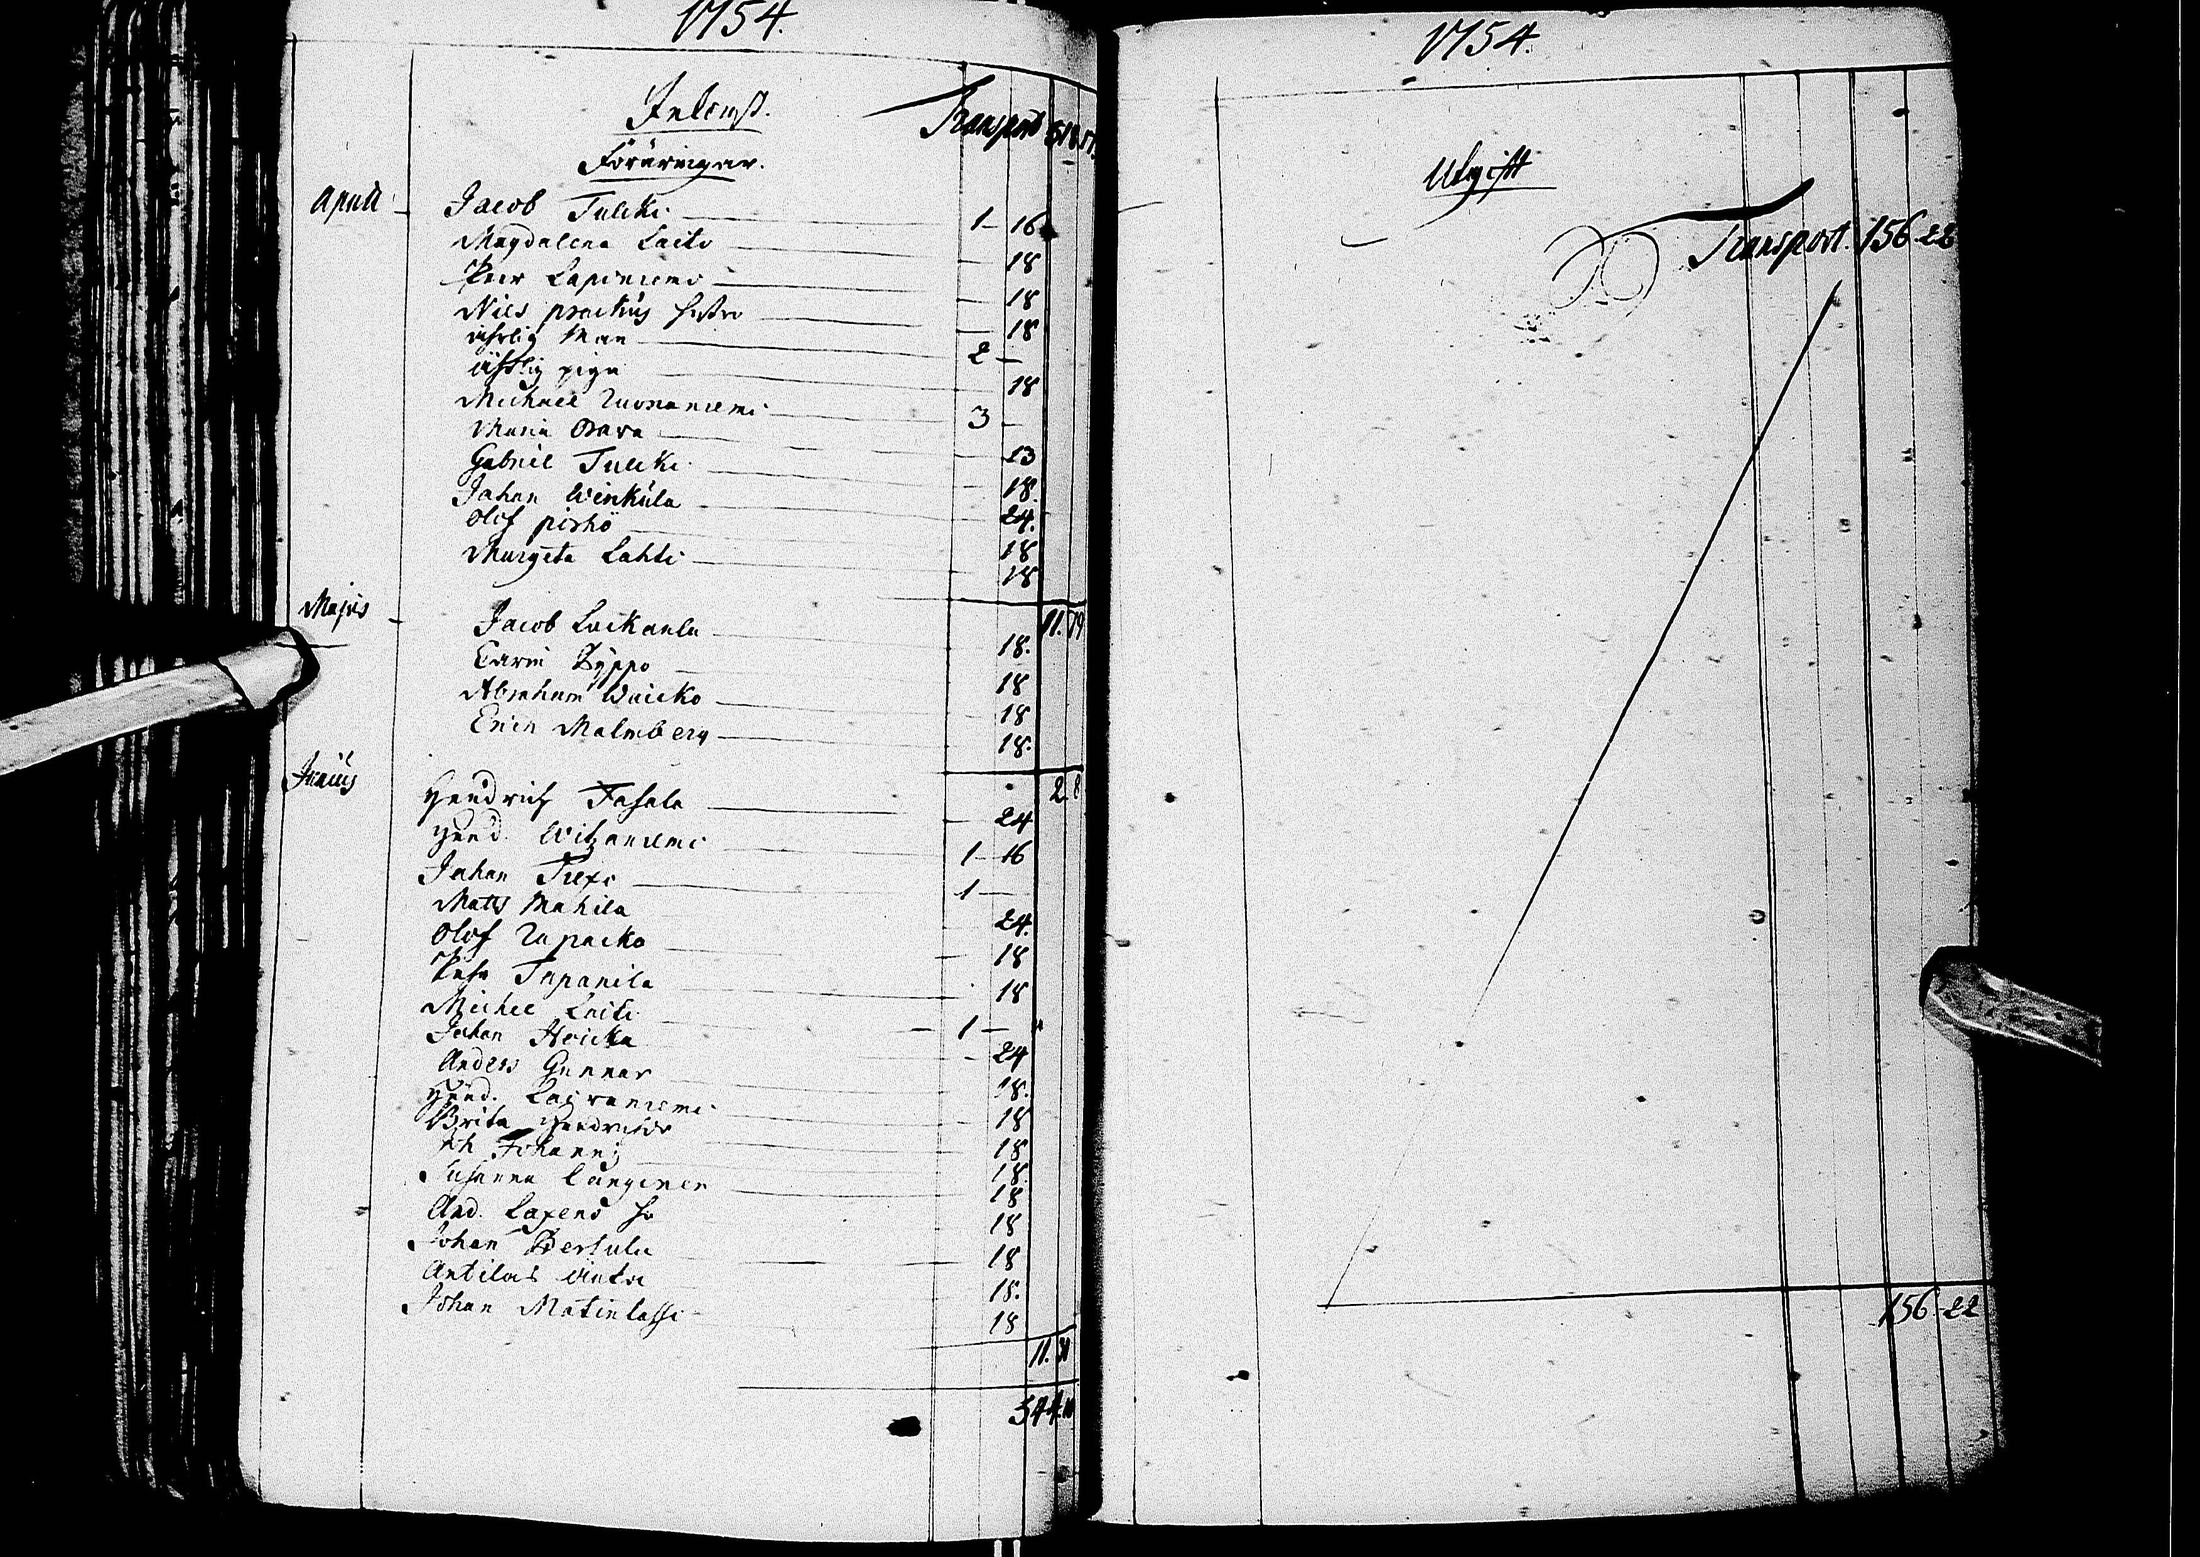 1754.
Inkomst. Transport
Föräringar.
Aprill Jacob Tulcki 1 16
Magdalena Laito 18
Peer Lapiniemi 18
Nils 18
ährlig Man 2
ährlig piga 18
Michael Vuonaniemi 3
Maria Orava 23
Gabriel Tulcki 18
Johan Winkula 24.
Olof pirhö 18
Margeta Lahti 18
11.
Majus Jacob Luckanla 18.
Carin Zyppo 18
Abraham Waicko 18
Erich Malmberg 18.
2. 8
Junius Hendrich Tasala 24
Hend. Witzaniemi 1 16
Johan 1
Matts Mahila 24.
Olof 18
Tapanila 18
Michel Laiti 1
Johan Hoicka 24
Anders Gunnar 18.
Hend. Laivaniemi 18
Brita 18
18
Susanna Langinen 18
And. Laxens 18
Johan Pertula 18
Antilas 18.
Johan Matinlassi 18
11.
544.
1754.
Utgift
Transport. 156-22
156-22